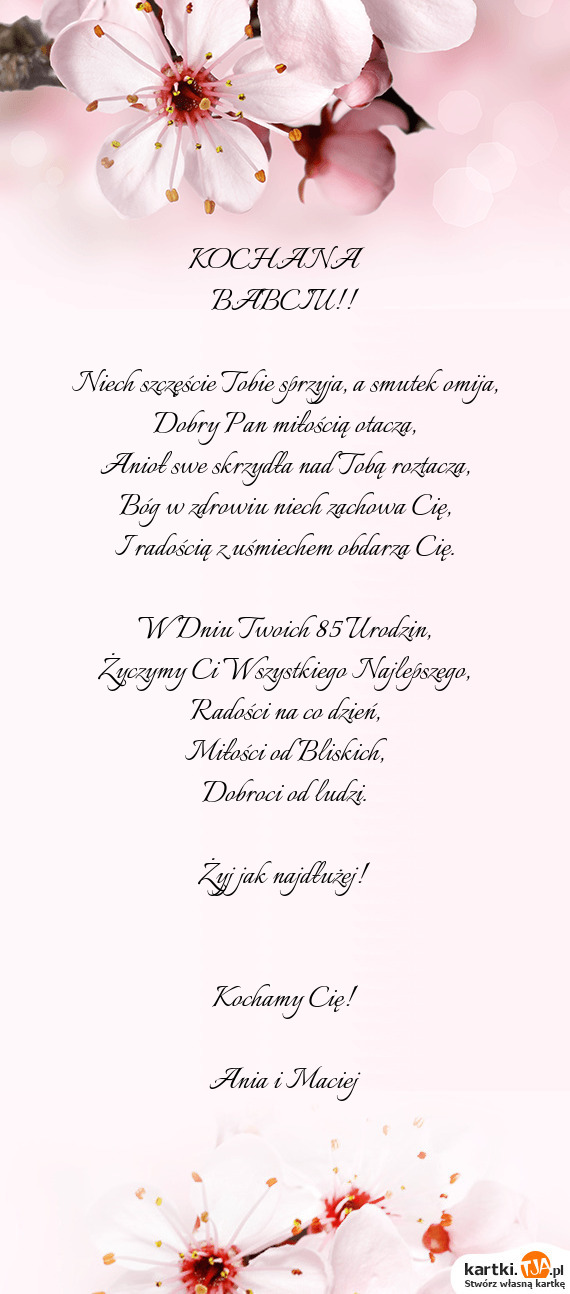 KOCHANA
BABCIU!!
Niech szczęście Tobie sprzyja, a smutek omija,
Dobry Pan miłością otacza,
Anioł swe skrzydła nad Tobą roztacza,
Bóg w zdrowiu niech zachowa Cię,
I radością z uśmiechem obdarza Cię.
W Dniu Twoich 85 Urodzin,
Życzymy Ci Wszystkiego Najlepszego,
Radości na co dzień,
Miłości od Bliskich,
Dobroci od ludzi.
Żyj jak najdłużej!
Kochamy Cię!
Ania i Maciej
kartki.TJA.pl
Stwórz własną kartkę